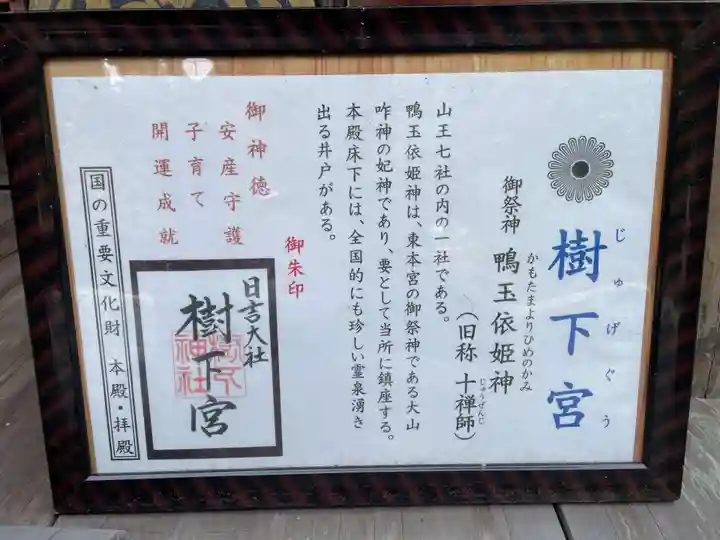 樹下宮
じゅげぐう
御祭神 鴨玉依姫神
かもたまよりひめのかみ
（旧称 十禅師）
じゅうぜんじ
山王七社の内の一社である。
鴨玉依姫神は、東本宮の御祭神である大山
咋神の妃神であり、要として当所に鎮座する。
本殿床下には、全国的にも珍しい霊泉湧き
出る井戸がある。
御神徳
安産守護
子育て
開運成就
御朱印
日吉大社
樹下宮
樹下神社
国の重要文化財 本殿・拝殿